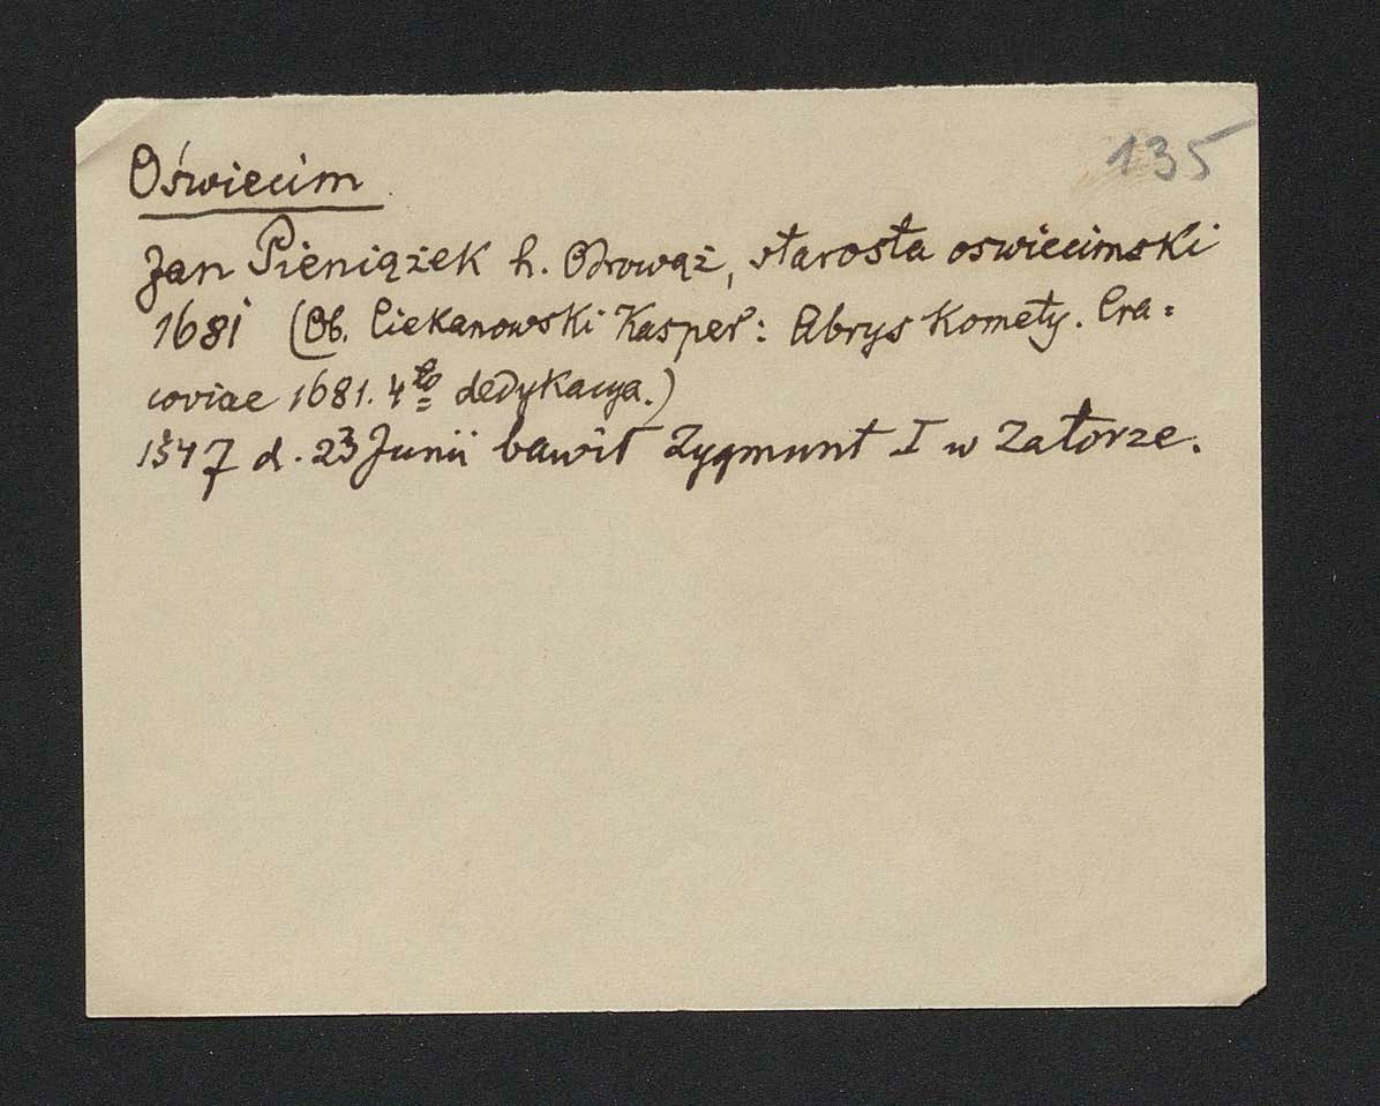 135
Oświecim
Jan Pieniążek h. Odrowąż, starosta oswiecimski
1681 (Ob. Ciekanowski Kasper: Abrys Komety. Cra=
coviae 1681. 4to dedykacya.)
1547 d. 23 Junii bawił Zygmunt I w Zatorze.